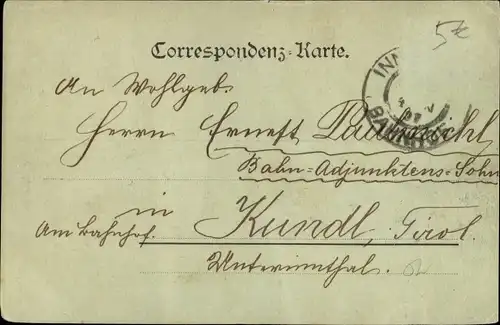 Correspondenz-Karte.
5€
INN
BAHNHOF
An Wohlgeb.
Herrn Ernest
Bahn-Adjunktens-Sohn
in
Am Bahnhof. Kundl, Tirol.
Unterinnthal.